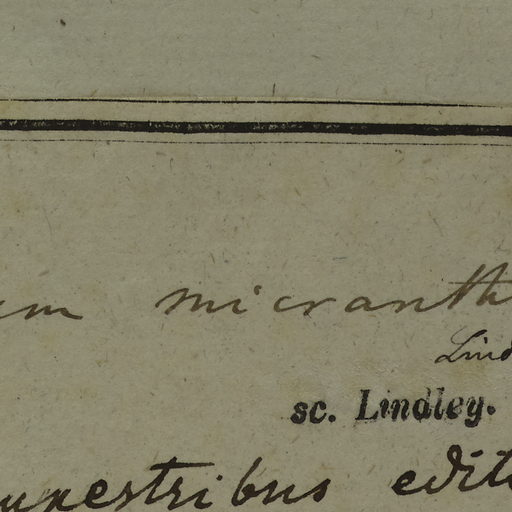 um micranth
Lind
sc. Lindley.
rupestribus edit